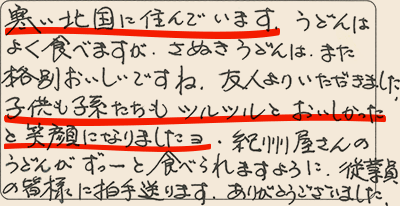 寒い北国に住んでいます。うどんは
よく食べますが、さぬきうどんは、また
格別おいしいですね。友人よりいただきました
子供も子孫たちも ツルツルとおいしかった
と笑顔になりましたョ。紀州屋さんの
うどんが ずっーと食べられますように、従業員
の皆様に拍手送ります。ありがとうございました。